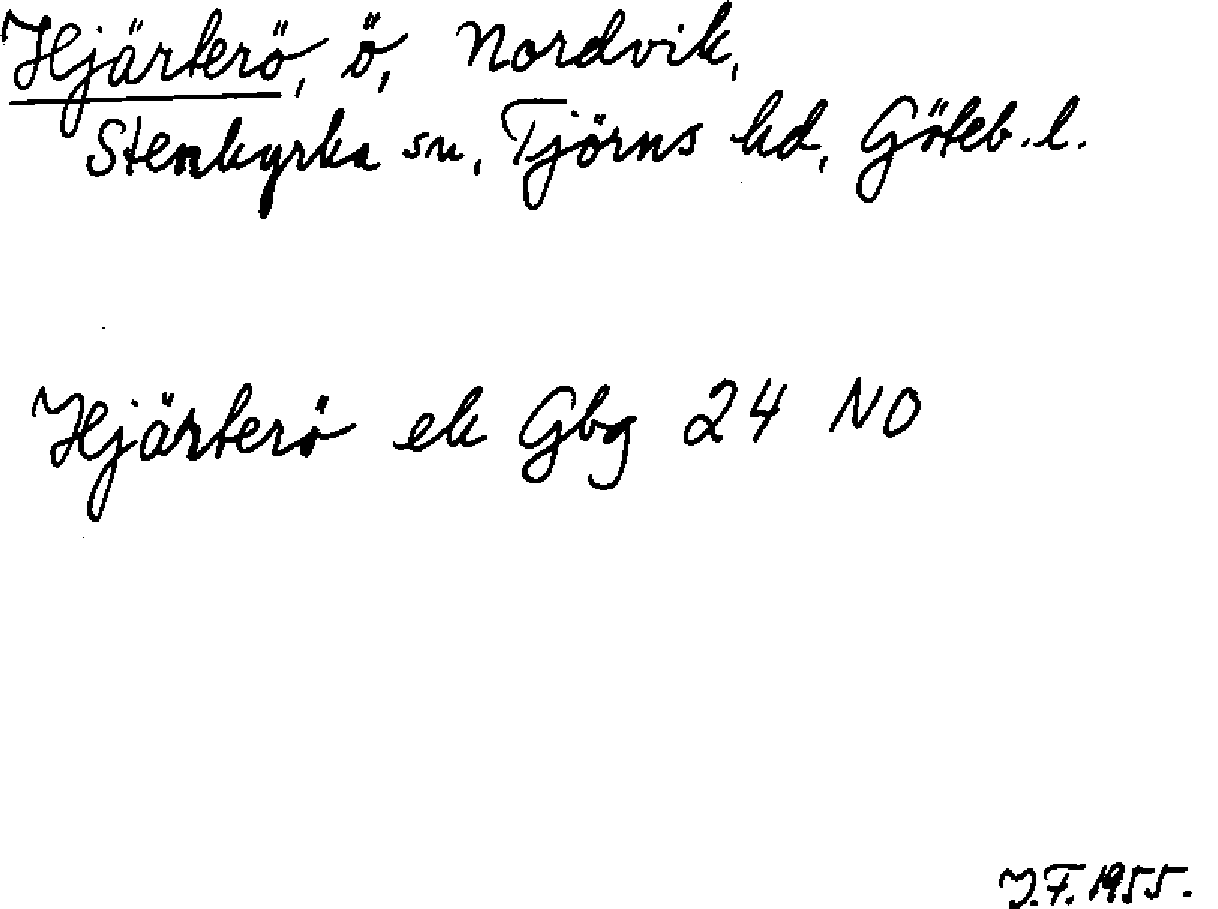 Hjärterö, ö, Nordvik,
Stenkyrka sn, Tjörns hd, Göteb. l.
Hjärterö ek Gbg 24 NO
J.F. 1955.